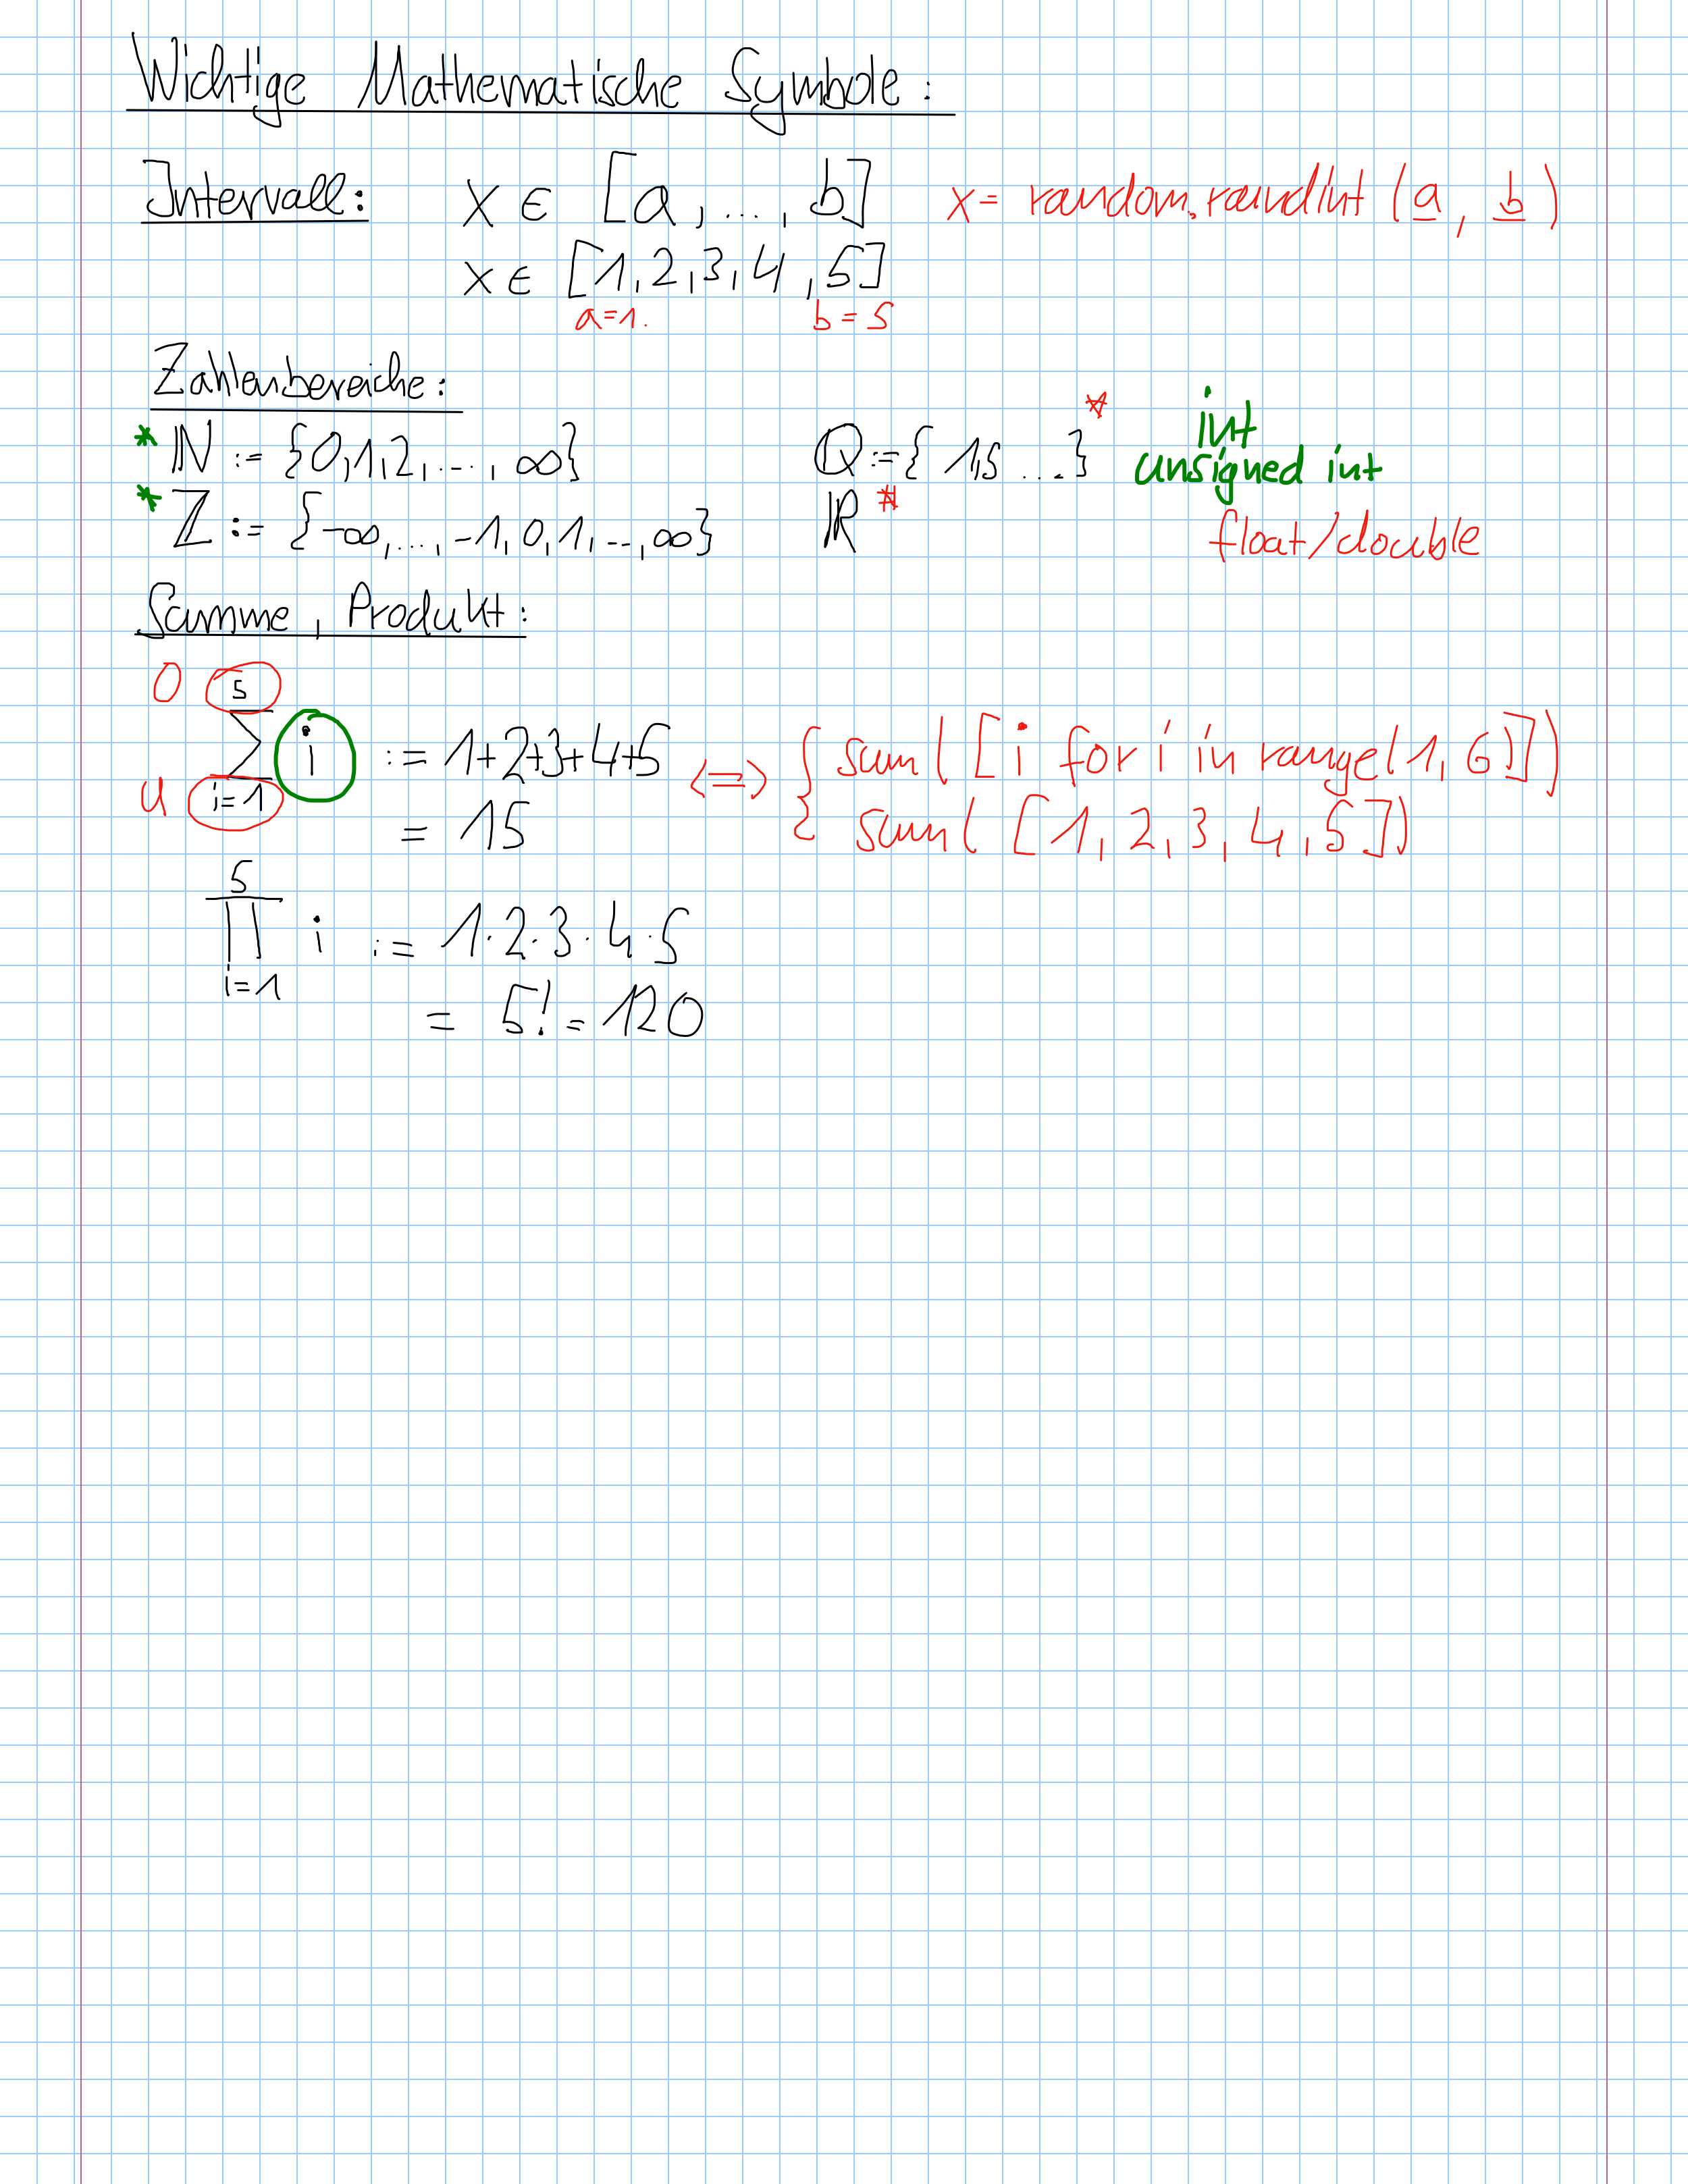 Wichtige Mathematische Symbole:
Intervall: x ∈ [a, ..., b] x = random.randint (a, b)
x ∈ [1, 2, 3, 4, 5]
a=1. b=5
Zahlenbereiche:
* ℕ := {0, 1, 2, ..., ∞} ℚ := { 1,5 ...} * int
unsigned int
* ℤ := {-∞, ..., -1, 0, 1, .., ∞} ℝ * float/double
Summe, Produkt:
O 5
∑ i := 1+2+3+4+5 <=> { sum([i for i in range(1, 6)])
u i=1
= 15 sum([1, 2, 3, 4, 5])
5
∏ i := 1·2·3·4·5
i=1
= 5! = 120